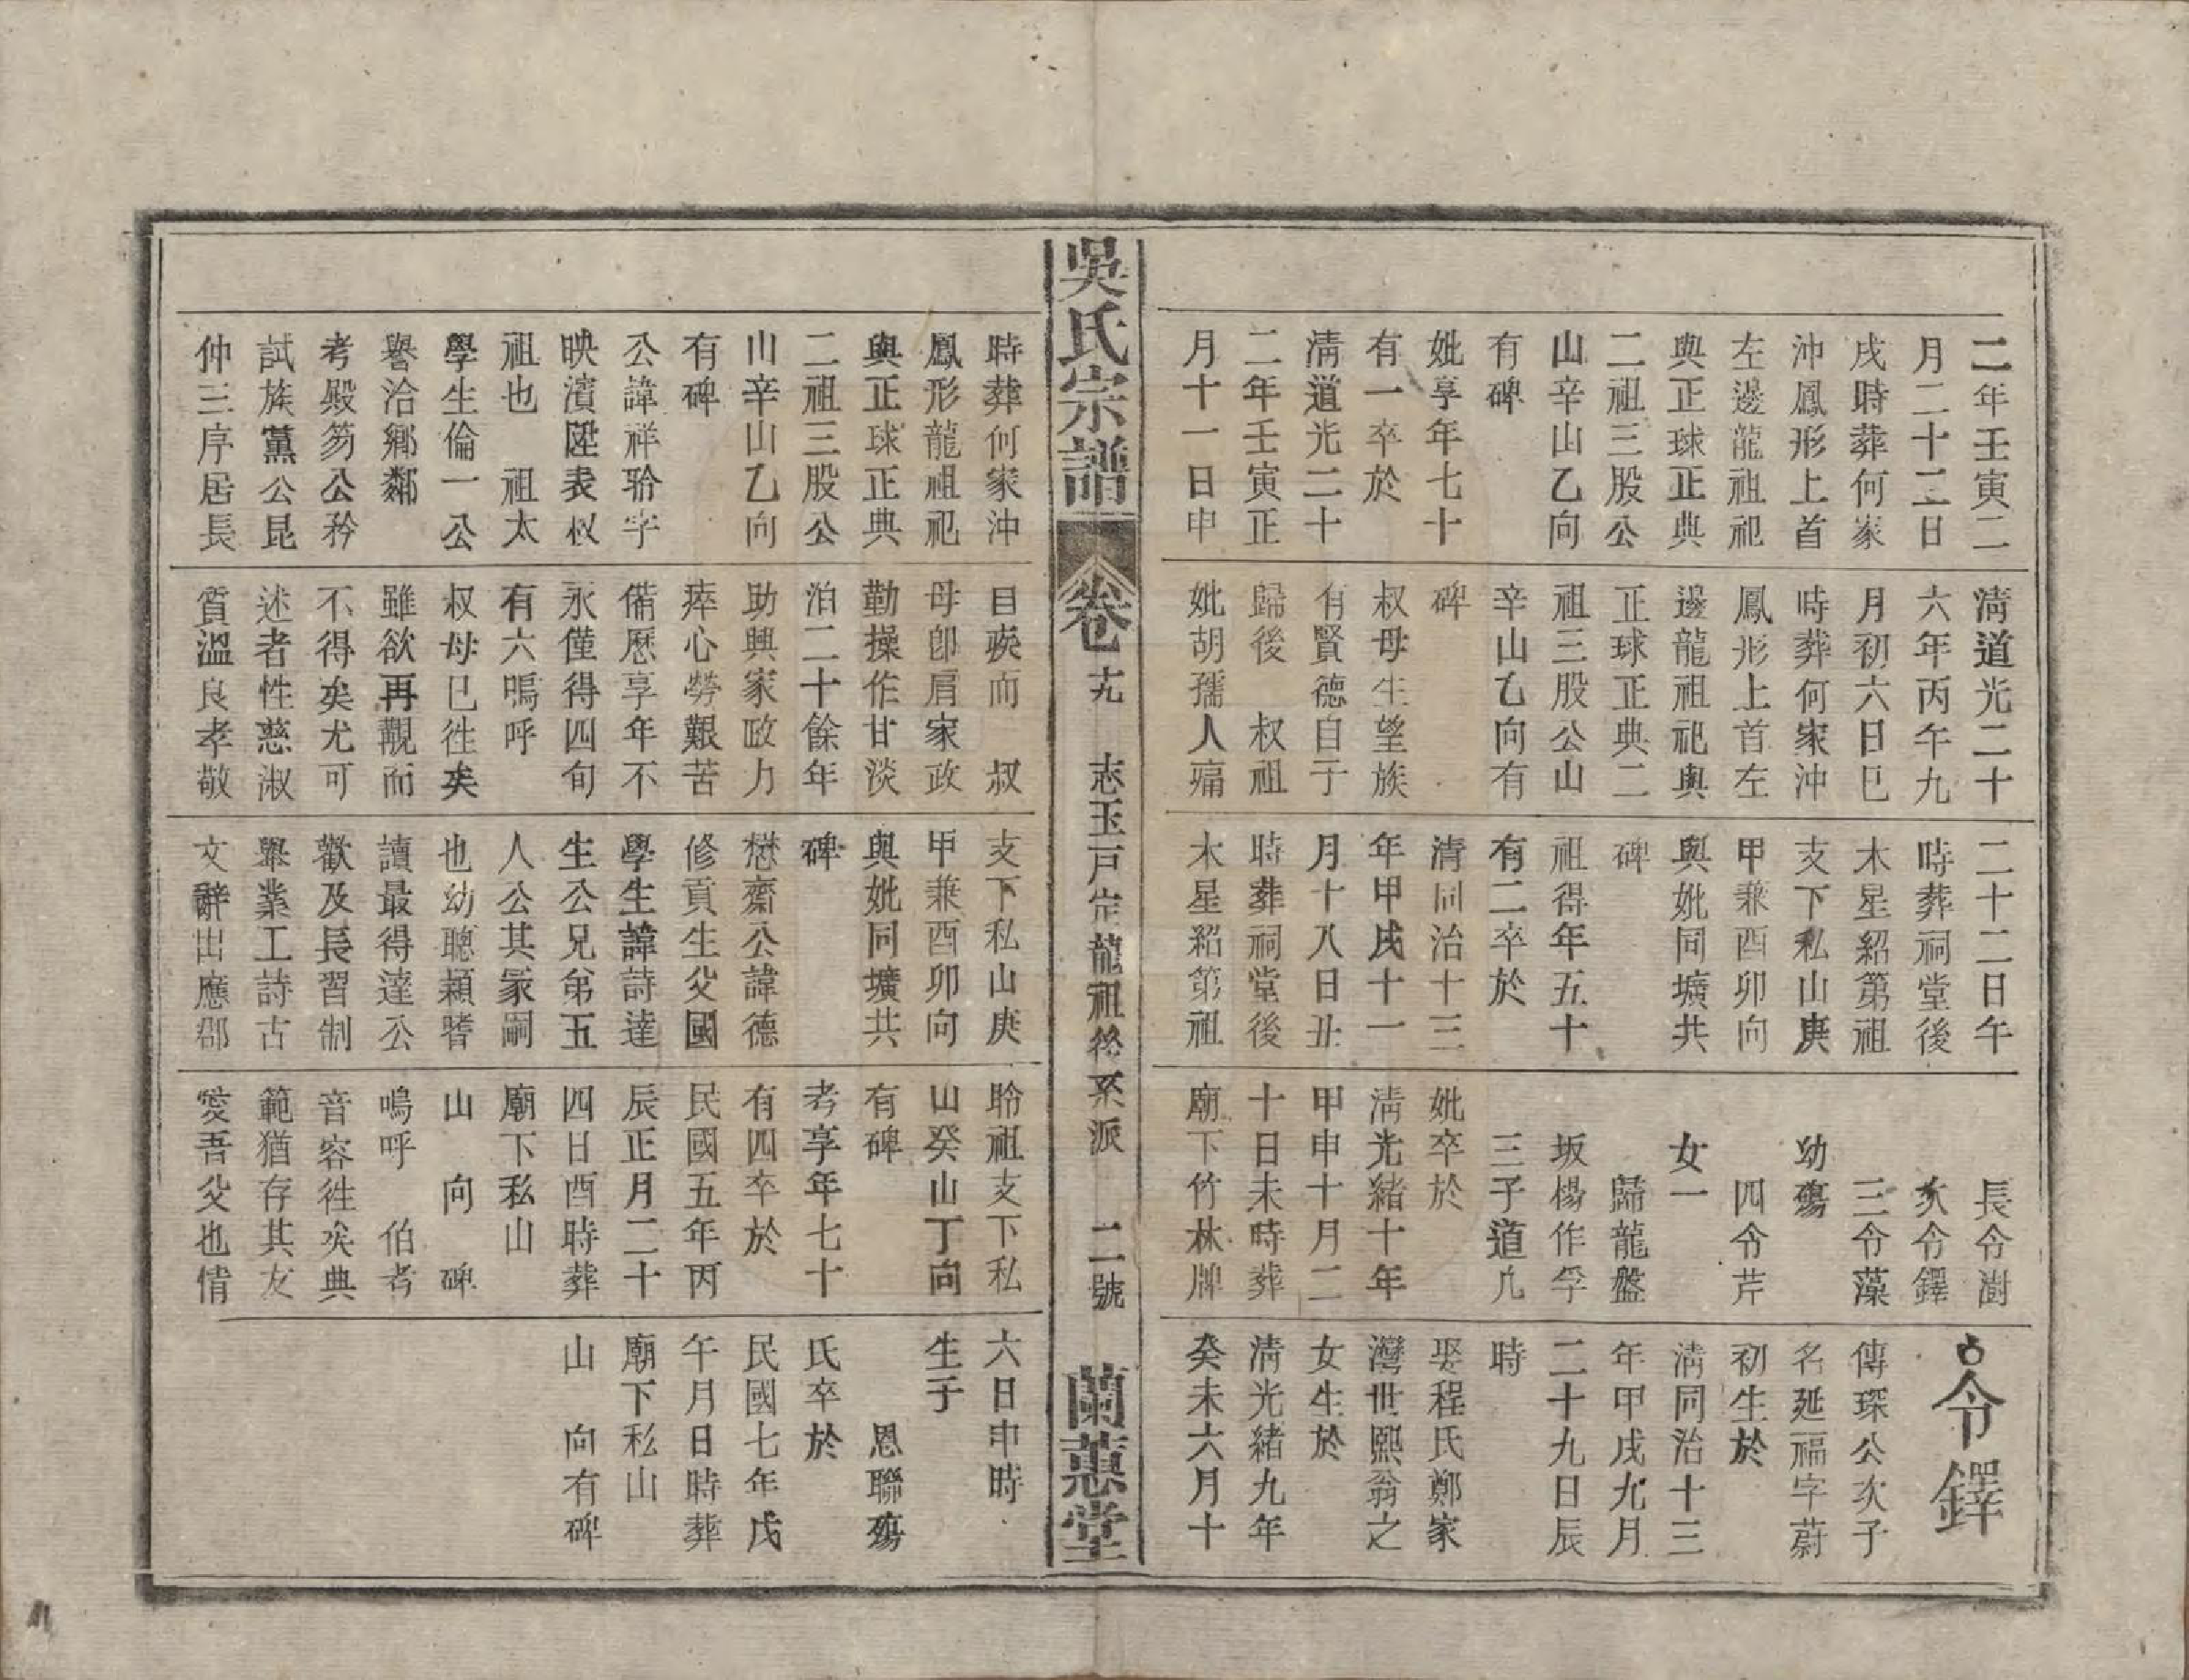 二年壬寅二
月二十二日
戌時葬何家
沖鳳形上首
左邊龍祖祀
與正球正典
二祖三股公
山辛山乙向
有碑
妣享年七十
有一卒於
清道光二十
二年壬寅正
月十一日申
清道光二十
六年丙午九
月初六日巳
時葬何家沖
鳳形上首左
邊龍祖祀與
正球正典二
祖三股公山
辛山乙向有
碑
叔母生望族
有賢德自于
歸後　叔祖
妣胡孺人痛
二十二日午
時葬祠堂後
木星紹第祖
支下私山庚
甲兼酉卯向
與妣同壙共
碑
祖得年五十
有二卒於
清同治十三
年甲戌十一
月十八日丑
時葬祠堂後
木星紹第祖
長令澍
次令鐸
三令藻
幼殤
四令芹
女一
歸龍盤
坂楊作孚
三子道凡
妣卒於
清光緒十年
甲申十月二
十日未時葬
廟下竹林牌
令鐸
傳琛公次子
名延福字蔚
初生於
清同治十三
年甲戌九月
二十九日辰
時
娶程氏鄭家
灣世熙翁之
女生於
清光緒九年
癸未六月十
吳氏宗譜
卷十九
志玉戶定龍祖後系派
二號
蘭蕙堂
時葬何家沖
鳳形龍祖祀
與正球正典
二祖三股公
山辛山乙向
有碑
公諱祥聆字
映濱陞表叔
祖也　祖太
學生倫一公
譽洽鄉鄰
考殿笏公矜
試族黨公昆
仲三序居長
目疾而　叔
母卽肩家政
勤操作甘淡
泊二十餘年
助興家政力
瘁心勞艱苦
備歷享年不
永僅得四旬
有六嗚呼
叔母已徃矣
雖欲再覯而
不得矣尤可
述者性慈淑
質溫良孝敬
支下私山庚
甲兼酉卯向
與妣同壙共
碑
懋齋公諱德
修貢生父國
學生諱詩達
生公兄弟五
人公其冢嗣
也幼聰穎嗜
讀最得達公
歡及長習制
舉業工詩古
文辭出應郡
聆祖支下私
山癸山丁向
有碑
考享年七十
有四卒於
民國五年丙
辰正月二十
四日酉時葬
廟下私山
山　向　碑
嗚呼　伯考
音容徃矣典
範猶存其友
愛吾父也情
六日申時
生子
恩聯殤
氏卒於
民國七年戊
午月日時葬
廟下私山
山　向有碑